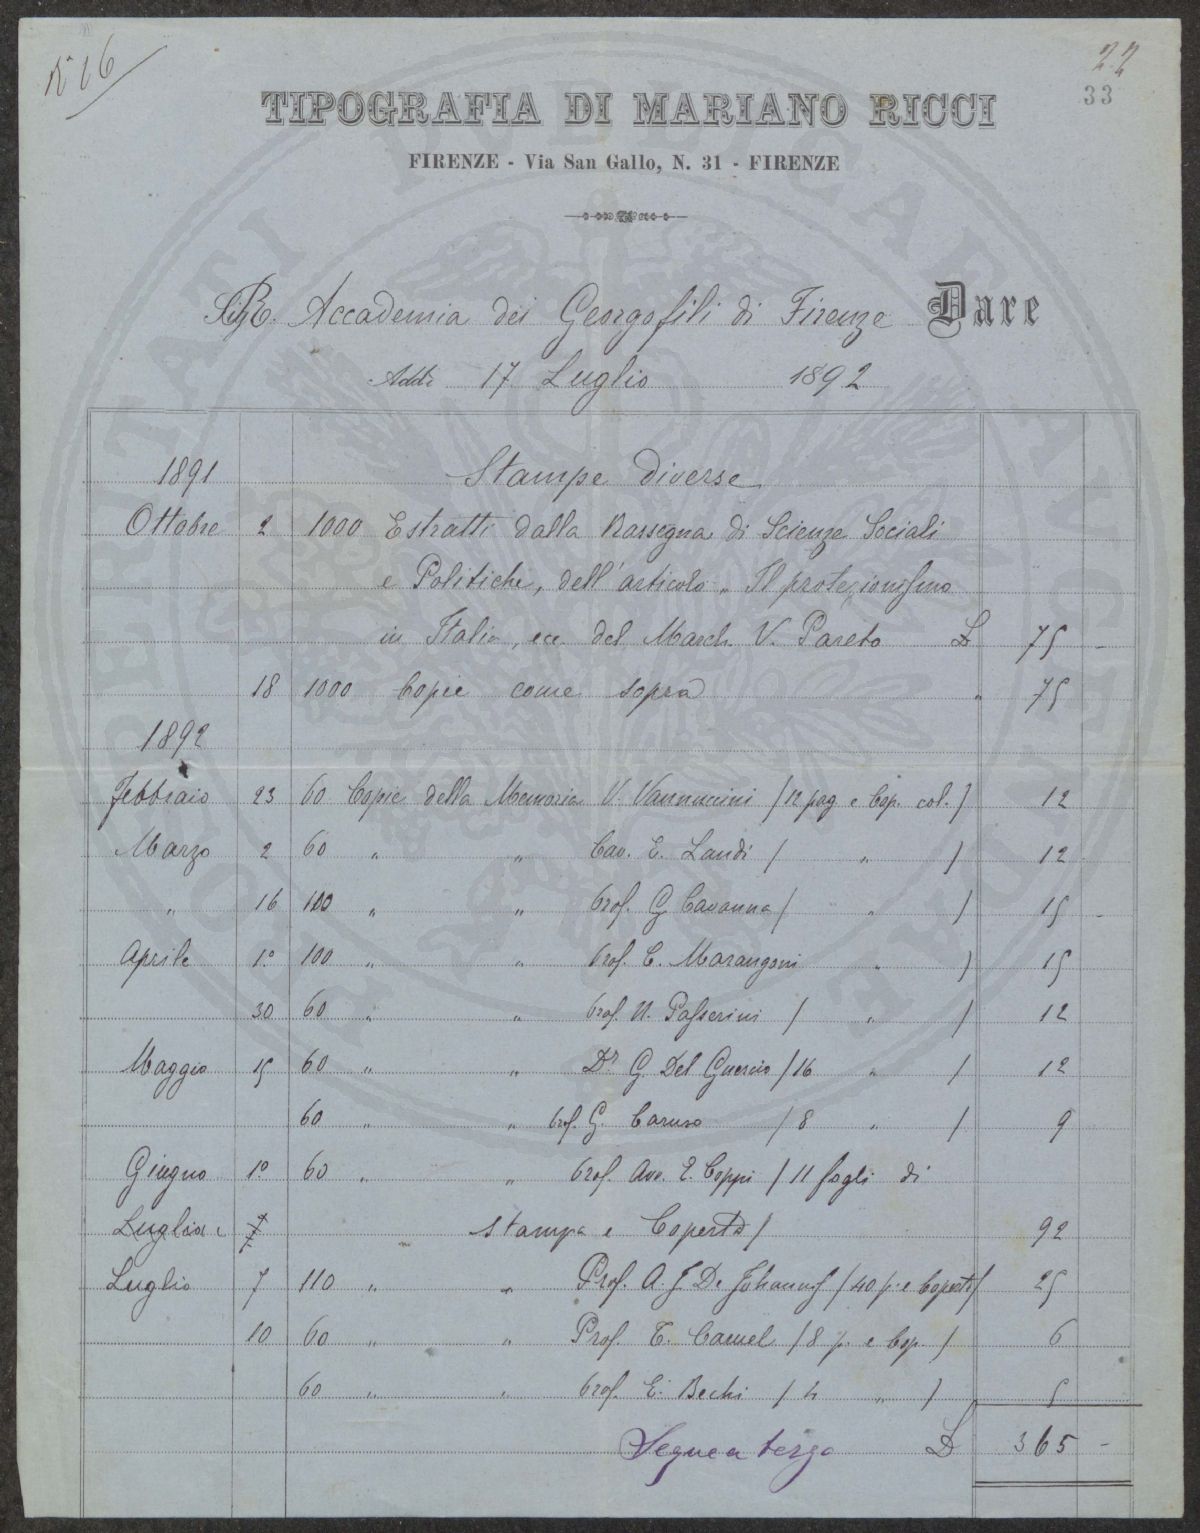 N° 16
22
33
TIPOGRAFIA DI MARIANO RICCI
FIRENZE - Via San Gallo, N. 31 - FIRENZE
R. Accademia dei Georgofili di Firenze Dare
Addì 17 Luglio 1892
1891 Stampe diverse
Ottobre 2 1000 Estratti dalla Rassegna di Scienze Sociali
e Politiche, dell'articolo „ Il protezionismo
in Italia, ecc. del March. V. Pareto L 75 -
18 1000 Copie come sopra „ 75
1892
Febbraio 23 60 Copie della Memoria V. Vannuccini / 12 pag e Cop. col. / 12
Marzo 2 60 „ „ Cav. E. Landi / „ / 12
„ 16 100 „ „ Prof. G Cavanna / „ / 15 -
Aprile 1.° 100 „ „ Prof. C. Marangoni „ / 15
30 60 „ „ Prof. N. Passerini / „ / 12
Maggio 15 60 „ „ Dr G. Del Guercio / 16 „ / 12
60 „ „ Prof. G. Caruso / 8 „ / 9
Giugno 1° 60 „ „ Prof. Avv. E. Coppi / 11 fogli di
Luglio 7 Stampa e Coperta / 92
Luglio 7 110 „ „ Prof. A. J. De Johannis / 40 p. e Coperta / 25
10 60 „ „ Prof. T. Caruel / 8 p. e Cop. / 6
60 „ „ Prof. E. Bechi / 4 „ / 5
Segue a tergo L 365 -